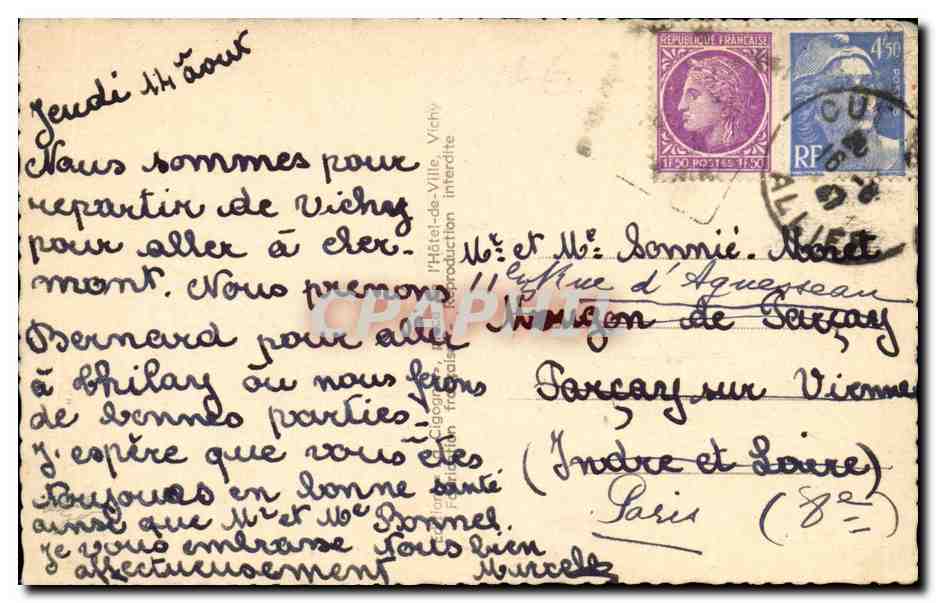 Jeudi 14 août
Nous sommes pour
repartir de Vichy
pour aller à Cler-
mont. Nous prenons
Bernard pour aller
à Philay où nous ferons
de bonnes parties!
J'espère que vous êtes
toujours en bonne santé
ainsi que Mr et Me Bonnel.
Je vous embrasse tous bien
affectueusement Marcel
l'Hôtel-de-Ville, Vichy
Reproduction interdite
RÉPUBLIQUE FRANÇAISE
1F50 POSTES 1F50
4F50
RF
CU
16 -8
47
ALLIER
Mr et Me Sonnié-Moret
11 Rue d'Aguesseau
Nougon de Parçay
Parçay sur Vienne
(Indre et Loire)
Paris (8e)
CPAPHIL